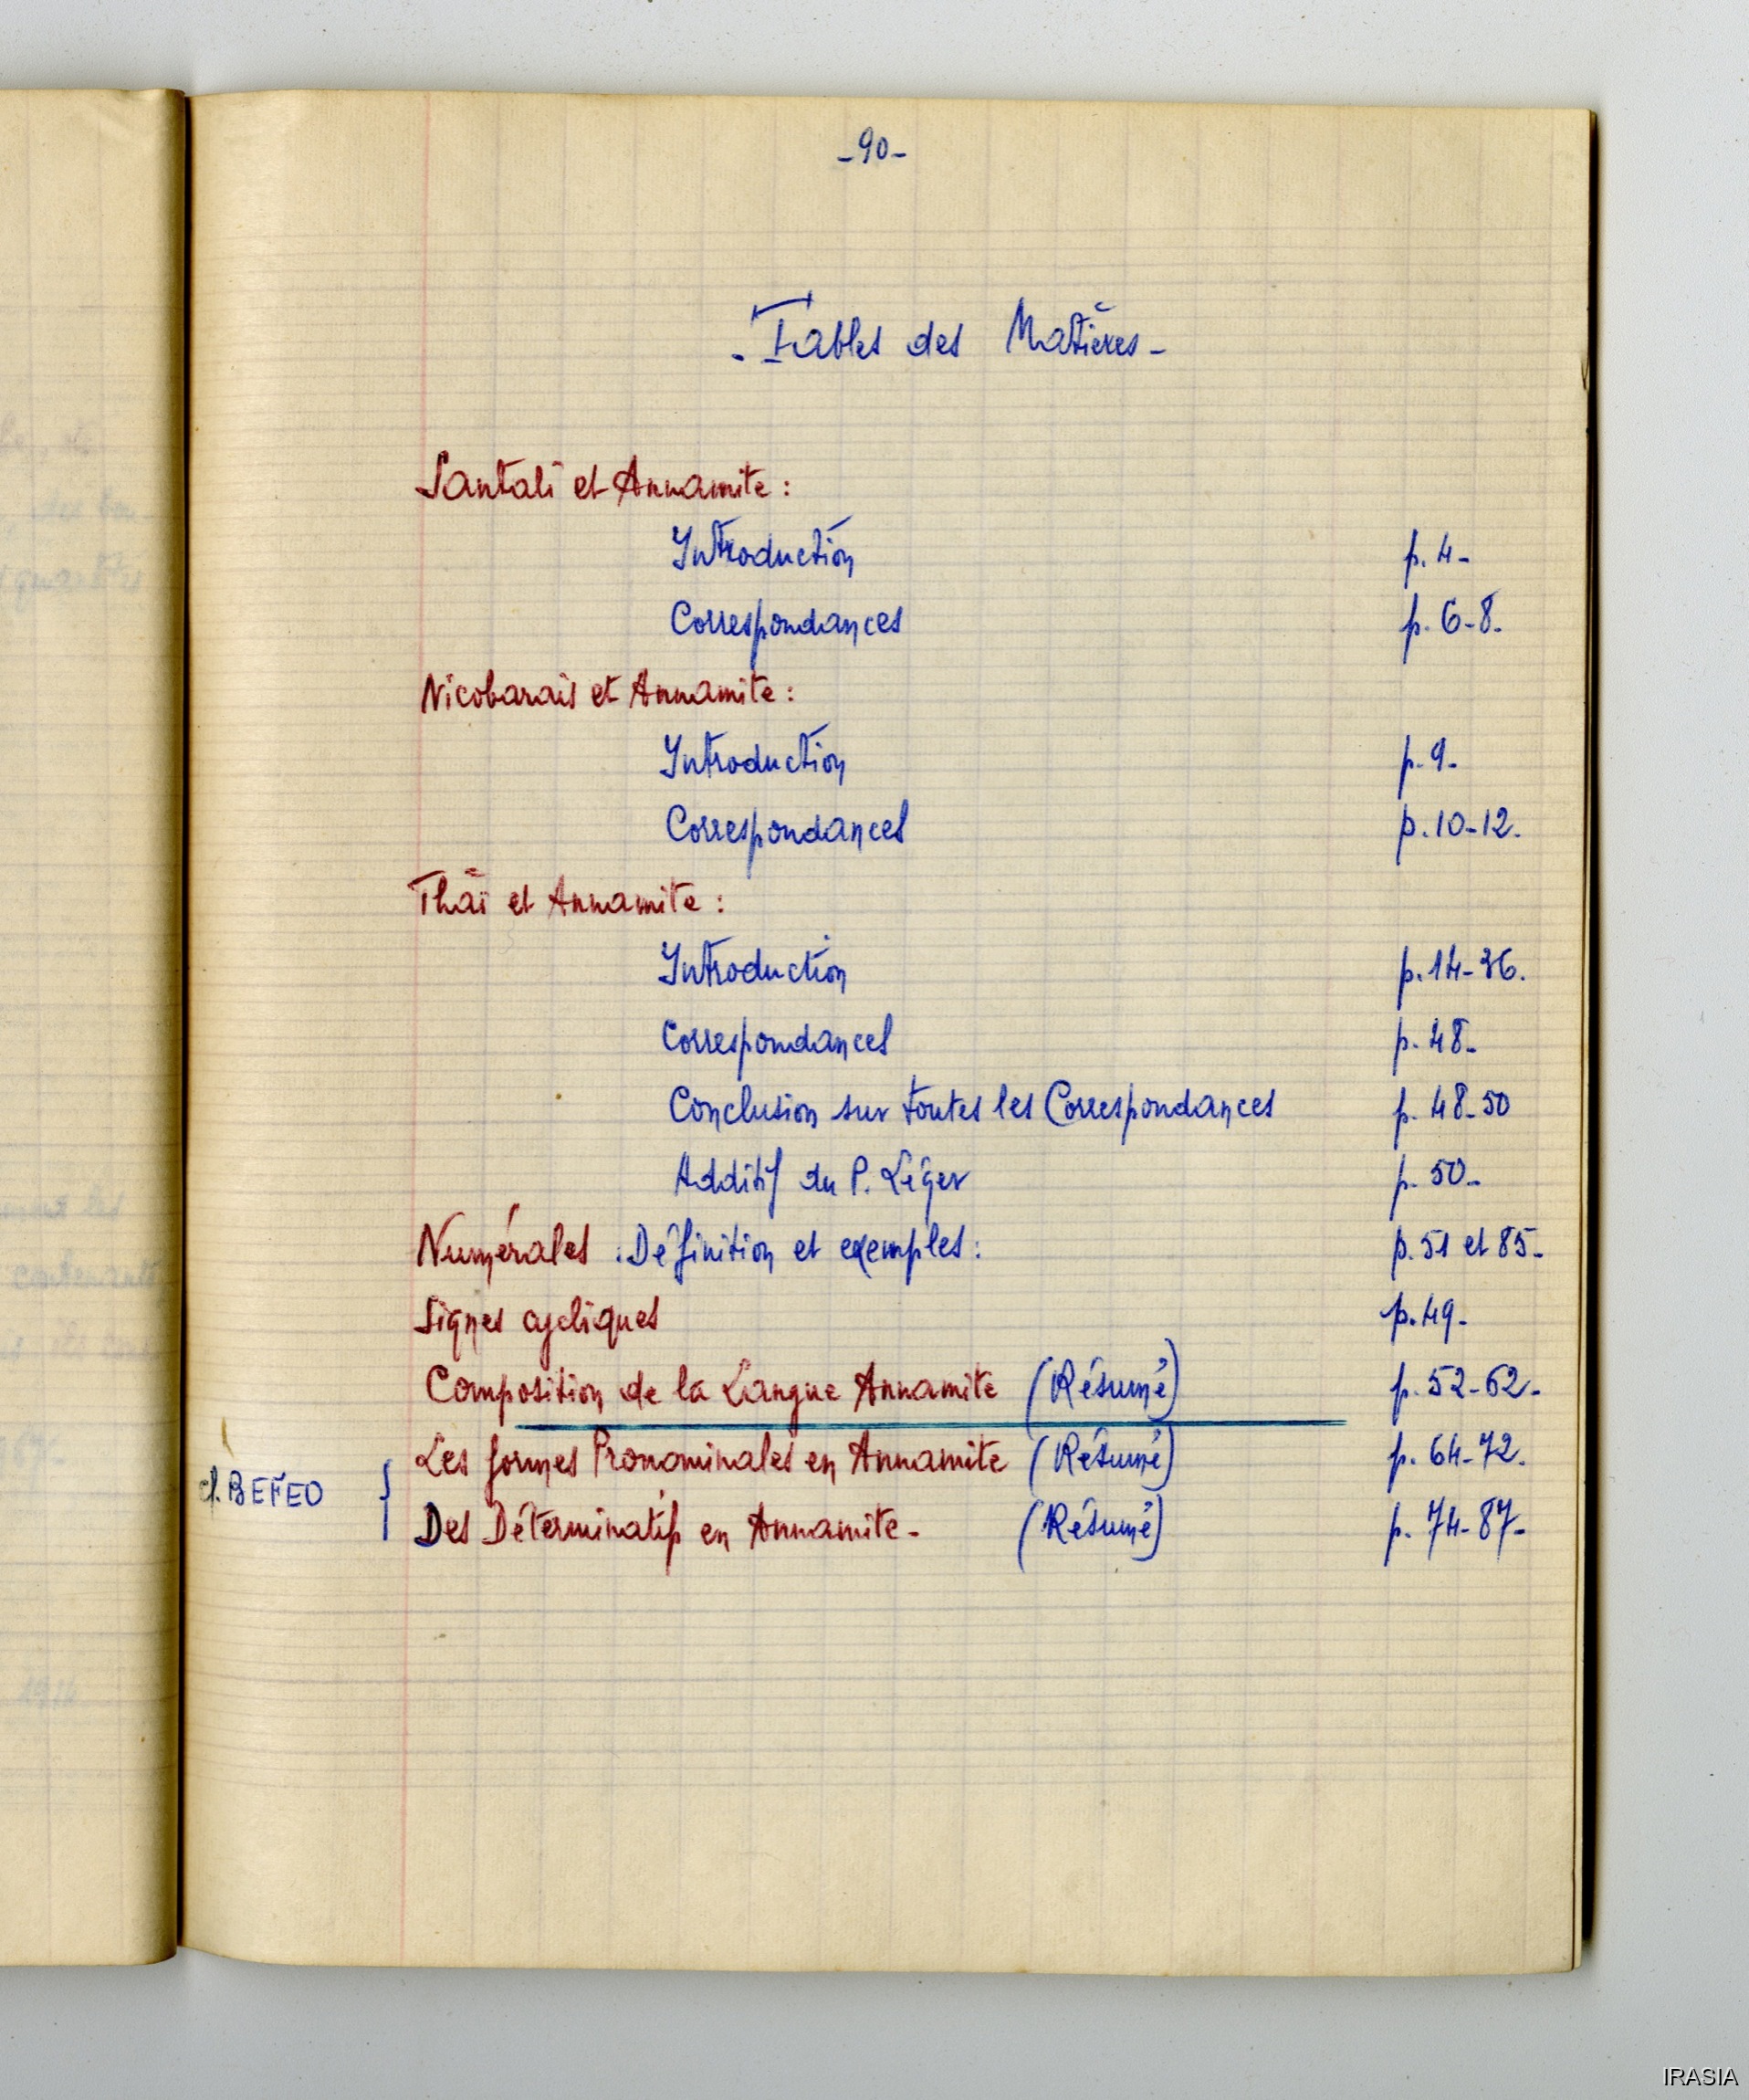 -90-
- Tables des Matières -
Santali et Annamite :
Introduction p. 4-
Correspondances p. 6-8.
Nicobarais et Annamite :
Introduction p. 9-
Correspondances p. 10-12.
Thaï et Annamite :
Introduction p. 14-36.
Correspondances p. 48-
Conclusion sur toutes les Correspondances p. 48-50
Additif du P. Léger p. 50-
Numérales : Définition et exemples : p. 51 et 85-
Signes cycliques p. 49-
Composition de la Langue Annamite (Résumé) p. 52-62-
Les formes Pronominales en Annamite (Résumé) p. 64-72.
cf. BEFEO { Des Déterminatifs en Annamite - (Résumé) p. 74-87-
IRASIA